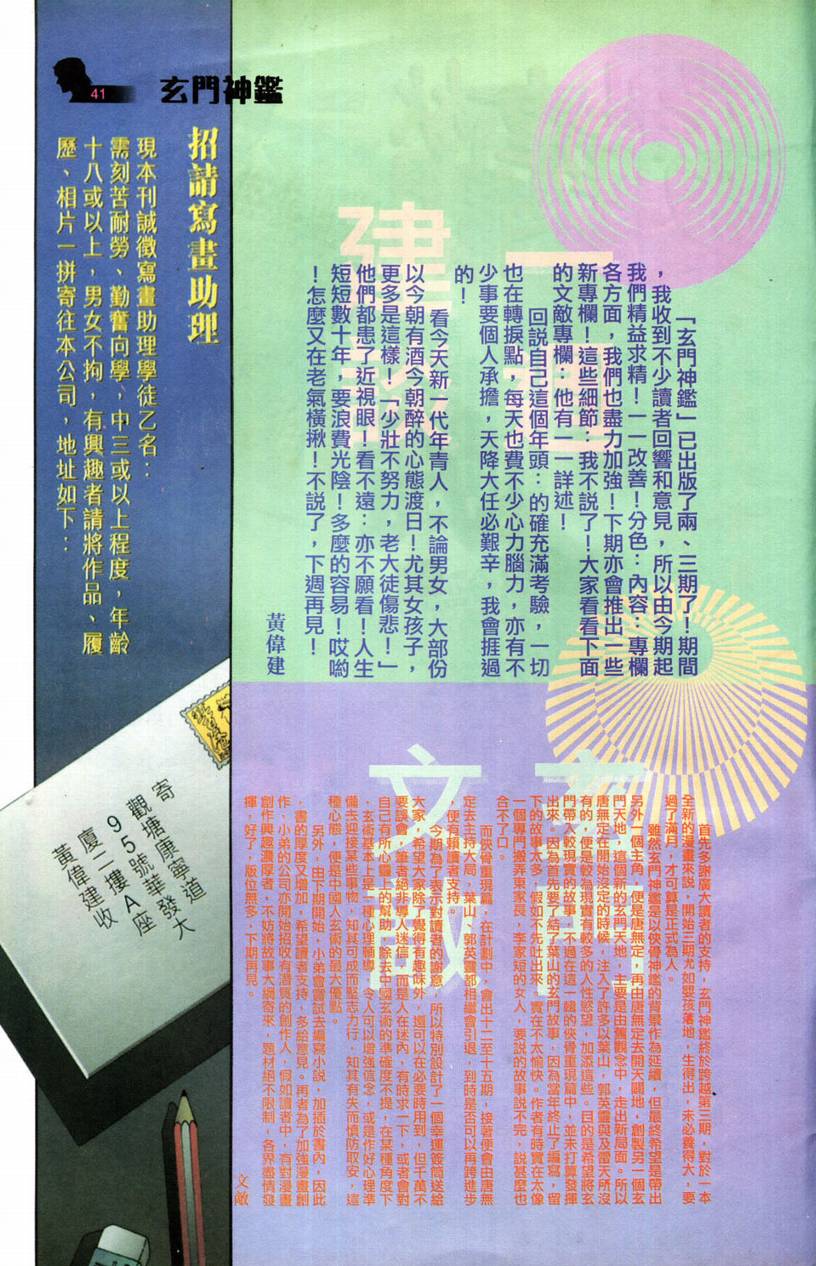 玄門神鑑
41
「玄門神鑑」已出版了兩、三期了！期間
，我收到不少讀者回響和意見，所以由今期起
我們精益求精！一一改善！分色：內容：專欄
各方面，我們也盡力加強！下期亦會推出一些
新專欄！這些細節：我不說了！大家看看下面
的文敵專欄：他有一一詳述！
回說自己這個年頭：的確充滿考驗，一切
也在轉捩點，每天也費不少心力腦力，亦有不
少事要個人承擔，天降大任必艱辛，我會捱過
的！
看今天新一代年青人，不論男女，大部份
以今朝有酒今朝醉的心態渡日！尤其女孩子，
更多是這樣！「少壯不努力，老大徒傷悲！」
他們都患了近視眼！看不遠：亦不願看！人生
短短數十年，要浪費光陰！多麼的容易！哎喲
！怎麼又在老氣橫揪！不說了，下週再見！
黃偉建
招請寫畫助理
現本刊誠徵寫畫助理學徒乙名：
需刻苦耐勞、勤奮向學，中三或以上程度，年齡
十八或以上，男女不拘，有興趣者請將作品、履
歷、相片一拼寄往本公司，地址如下：
寄
觀塘康寧道
95號華發大
廈二樓A座
黃偉建收
文敵
首先多謝廣大讀者的支持，玄門神鑑終於跨越第三期，對於一本
全新的漫畫來說，開始三期尤如嬰孩落地，生得出，未必養得大，要
過了滿月，才可算是正式為人。
雖然玄門神鑑是以俠骨神鑑的背景作為延續，但最終希望是帶出
另外一個主角，便是唐無定，再由唐無定去開天闢地，創製另一個玄
門天地，這個新的玄門天地，主要是由舊觀念中，走出新局面。所以
唐無定在開始沒定的時候，注入了許多以葉山，郭英靈與及雷天所沒
有的，便是較為現實有較多的人性慾望，加添這些。目的是希望將玄
門帶入較現實的故事，不過在這一輯的俠骨重現篇中，並未打算發揮
出來。因為首先要了結了葉山的玄門故事，因為當年終止了編寫，留
下的故事太多，假如不先吐出來，實在不太愉快。作者有時實在太像
一個專門搬弄東家長，李家短的女人，要說的故事說不完，說甚麼也
合不了口。
而俠骨重現篇，在計劃中，會出十二至十五期，接著便會由唐無
定去主持大局，葉山、郭英靈都相繼會引退，到時是否可以再跨進步
，便有賴讀者支持。
今期為了表示對讀者的謝意，所以特別設計了一個幸運簽筒送給
大家，希望大家除了覺得有趣味外，還可以在必要時用到，但千萬不
要誤會，筆者絕非導人迷信，而是人在迷內，有時求一下，或者會對
自己有所心靈上的幫助，除去中國玄術的準確度不提，在某種角度下
，玄術基本上是一種心理輔導，令人可以增強信念，或是作好心理準
備去迎接某些事物，知其可成而堅志力行，知其有失而慎防取安，這
種心態，便是中國人玄術的最大優點。
另外，由下期開始，小弟會嘗試去編寫小說，加插於書內，因此
，書的厚度又增加，希望讀者支持，多給意見。再者為了加強漫畫創
作，小弟的公司亦開始招收有潛質的創作人，假如讀者中，有對漫畫
創作興趣濃厚者，不妨將故事大綱寄來，題材絕不限制，各界盡情發
揮，好了，版位無多，下期再見。
文敵